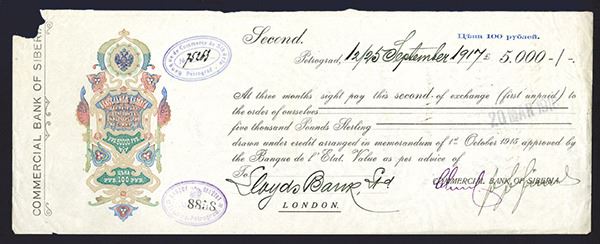 COMMERCIAL BANK OF SIBERIA
Second.
Цѣна 100 рублей.
Banque de Commerce de Sibérie
№ 75253
Petrograd
Petrograd, 12/25 September 1917 £ 5.000-/-
At three months sight pay this second of exchange (first unpaid) to
the order of ourselves
five thousand Pounds Sterling
drawn under credit arranged in memorandum of 1st October 1915 approved by
the Banque de l'Etat. Value as per advice of
To
Lloyds Bank Ltd
LONDON.
COMMERCIAL BANK OF SIBERIA
ЦѢНА
РУБ. 100 РУБ.
8858